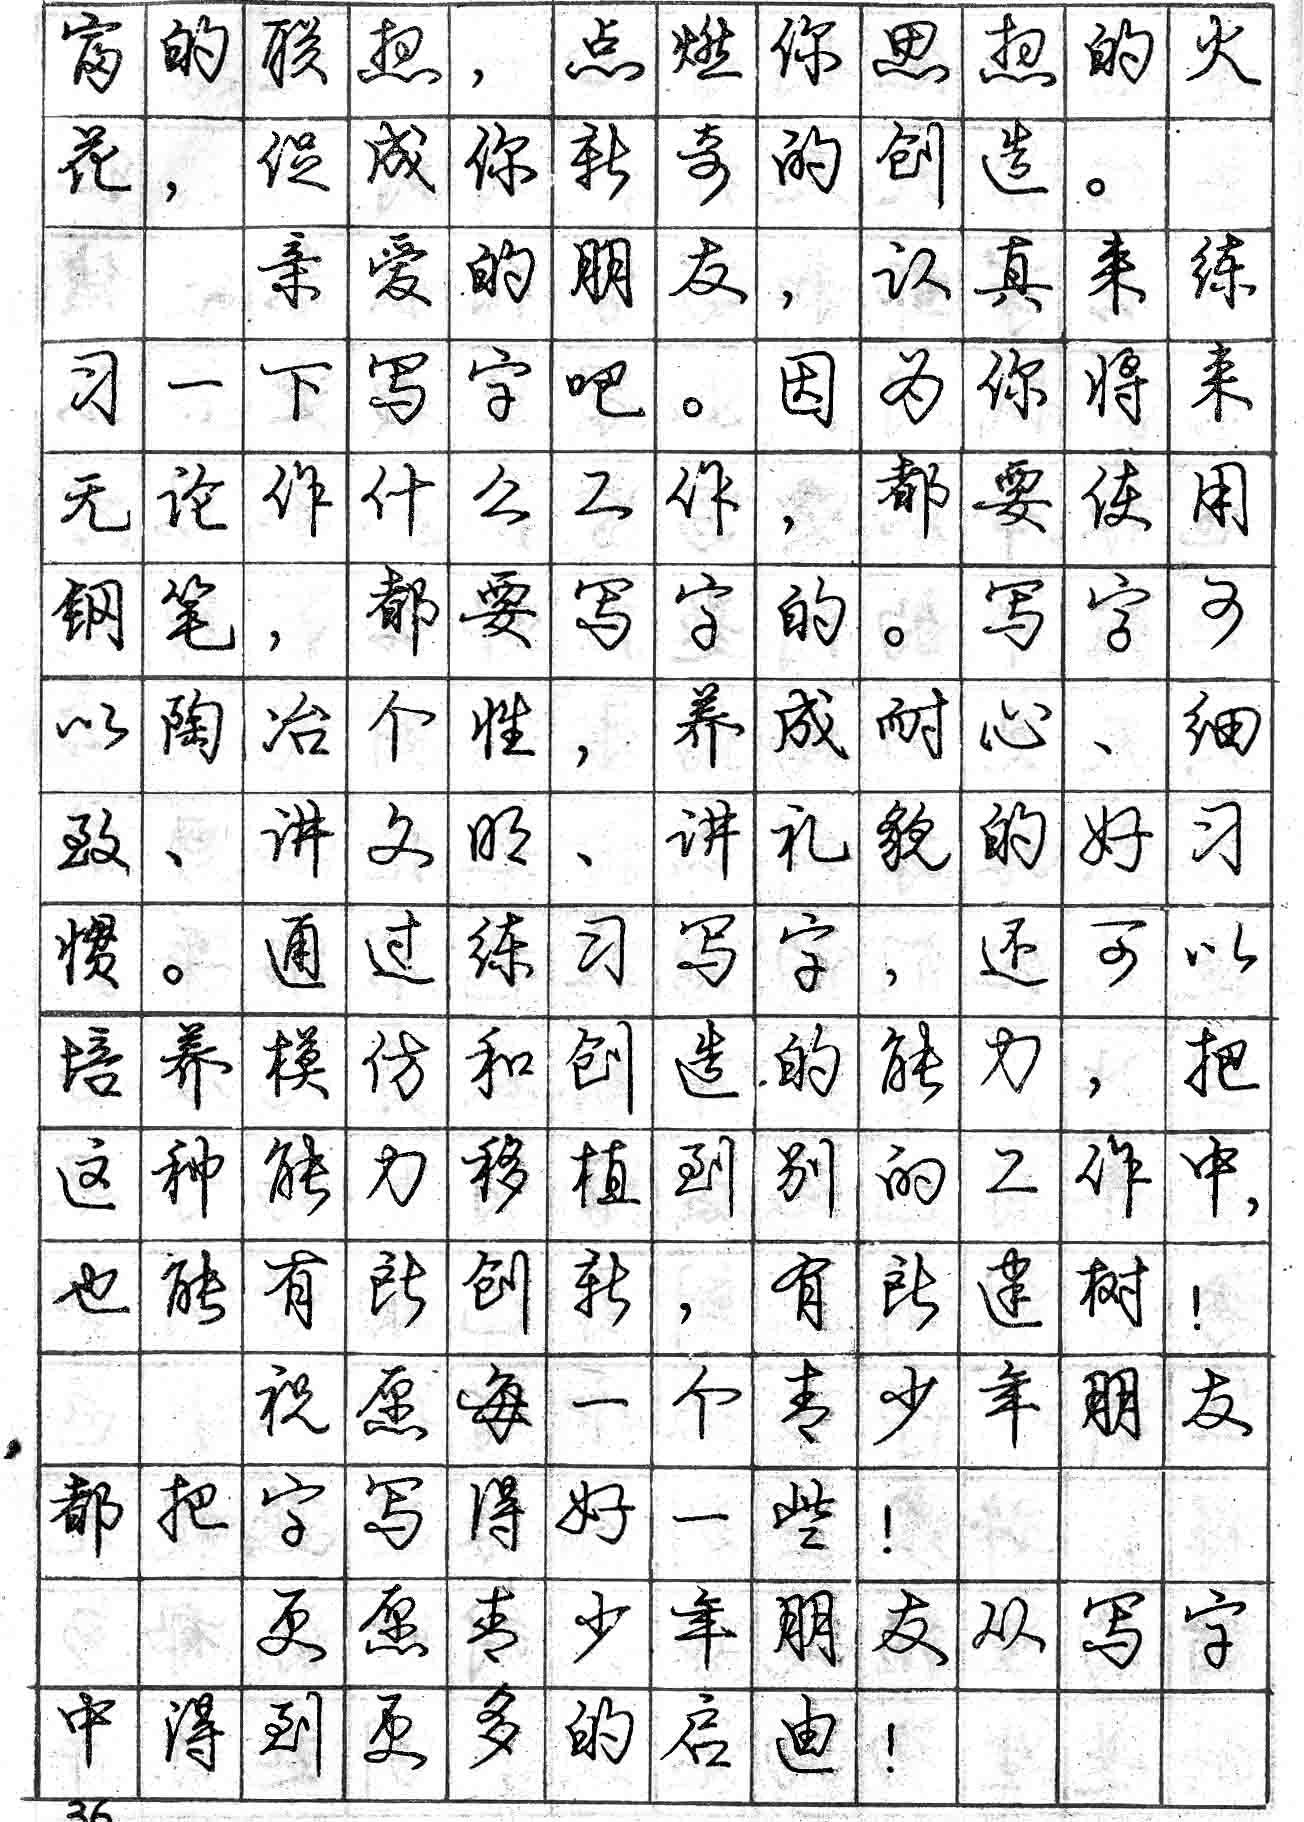 富的联想，点燃你思想的火
花，促成你新奇的创造。
亲爱的朋友，认真来练
习一下写字吧。因为你将来
无论作什么工作，都要使用
钢笔，都要写字的。写字可
以陶冶个性，养成耐心、细
致、讲文明、讲礼貌的好习
惯。通过练习写字，还可以
培养模仿和创造的能力，把
这种能力移植到别的工作中，
也能有所创新，有所建树！
祝愿每一个青少年朋友
都把字写得好一些！
更愿青少年朋友从写字
中得到更多的启迪！
36